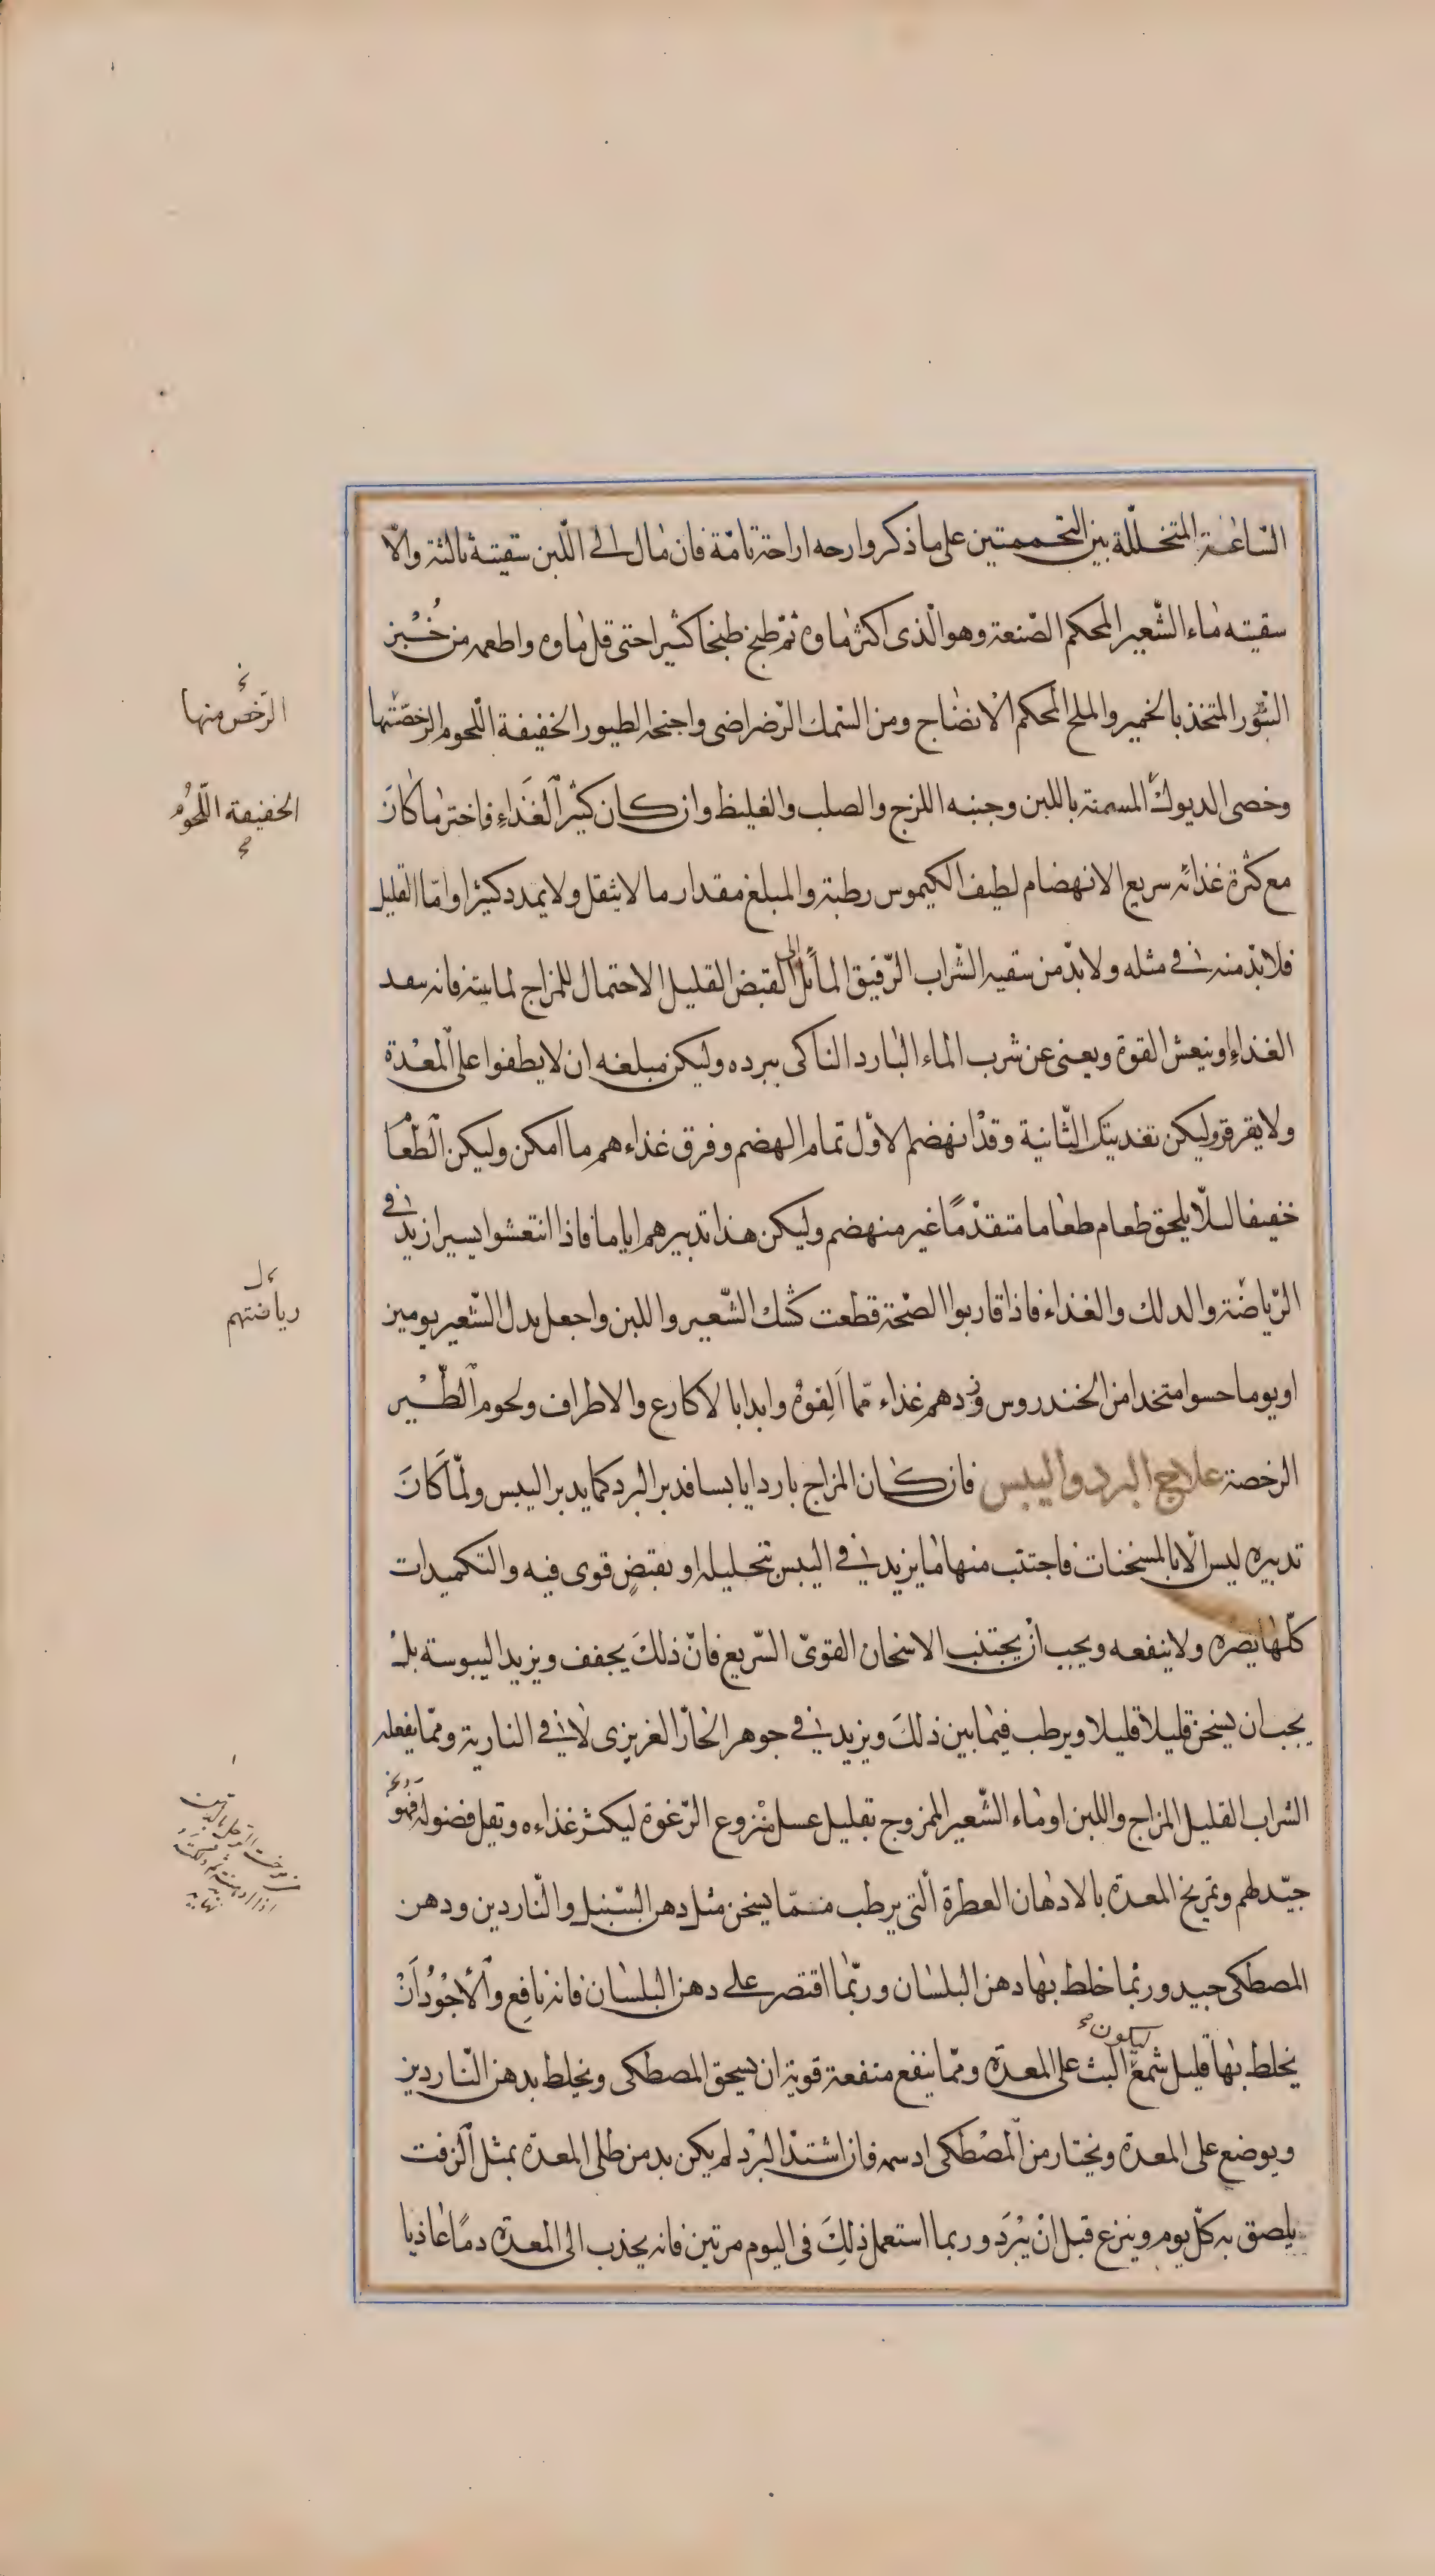 الساعة المتخللة بين التحممتين على ما ذكر وارحه اراحة تامة فان مال الى اللبن سقيته ثالثة والا
سقيته ماء الشعير المحكم الصنعة وهو الذى اكثر ماوه ثم طبخ طبخا كثيرا حتى قل ماوه واطعمه من خبز
التنور المتخذ بالخمير والملح المحكم الانضاج ومن السمك الرضراضى واجنحة الطيور الخفيفة اللحوم الرخصتها
وخصى الديوك المسمنة باللبن وجنبه اللزج والصلب والغليظ وان كان كثير الغذاء فاختر ما كان
مع كثرة غذائه سريع الانهضام لطيف الكيموس رطبة والمبلغ مقدار ما لا يثقل ولا يمدد كثيرا واما القليل
فلا بد منه فى مثله ولا بد من سقيه الشراب الرقيق المائل الى القبض القليل الاحتمال للمزاج لمائيته فانه سعد
الغذاء وينعش القوة ويعنى عن شرب الماء البارد الناكى ببرده وليكن مبلغه ان لا يطفوا على المعدة
ولا يقرقر وليكن تغديتك الثانية وقد انهضم الاول تمام الهضم وفرق غذاءهم ما امكن وليكن الطعام
خفيفا لئلا يلحق طعام طعاما متقدما غير منهضم وليكن هذا تدبيرهم اياما فاذا انتعشوا يسيرا زيد فى
الرياضة والدلك والغذاء فاذا قاربوا الصحة قطعت كشك الشعير واللبن واجعل بدل الشعير يومين
او يوما حسوا متخدا من الخندروس وزدهم غذاء مما الفوه وابدا بالاكارع والاطراف ولحوم الطير
الرخصة علاج البرد واليبس فان كان المزاج باردا يابسا فدبر البرد كما يدبر اليبس ولما كان
تدبيره ليس الا بالمسخنات فاجتنب منها ما يزيد فى اليبس بتحليله او بقبض قوى فيه والتكميدات
كلها يضره ولا ينفعه ويجب ان يجتنب الاسخان القوى السريع فان ذلك يجفف ويزيد اليبوسة بل
يجب ان يسخن قليلا قليلا ويرطب فيما بين ذلك ويزيد فى جوهر الحار الغريزى لا فى النارية ومما يفعله
الشراب القليل المزاج واللبن او ماء الشعير الممزوج بقليل عسل منزوع الرغوة ليكثر غذاءه وتقل فضوله فهو
جيد لهم وتمريخ المعدة بالادهان العطرة التى يرطب مما يسخن مثل دهن السنبل والناردين ودهن
المصطكى جيد وربما خلط بها دهن البلسان وربما اقتصر على دهن البلسان فانه نافع والاجود ان
يخلط بها قليل شمع ليكون البث على المعدة ومما ينفع منفعة قوية ان يسحق المصطكى ويخلط بدهن الناردين
ويوضع على المعدة ويختار من المصطكى ادسمه فان اشتد البرد لم يكن بد من طلى المعدة بمثل الزفت
يلصق به كل يوم وينزع قبل ان يبرد وربما استعمل ذلك فى اليوم مرتين فانه يجذب الى المعدة دما غاذيا
الرخص منها
الخفيفة اللحوم
رياضتهم